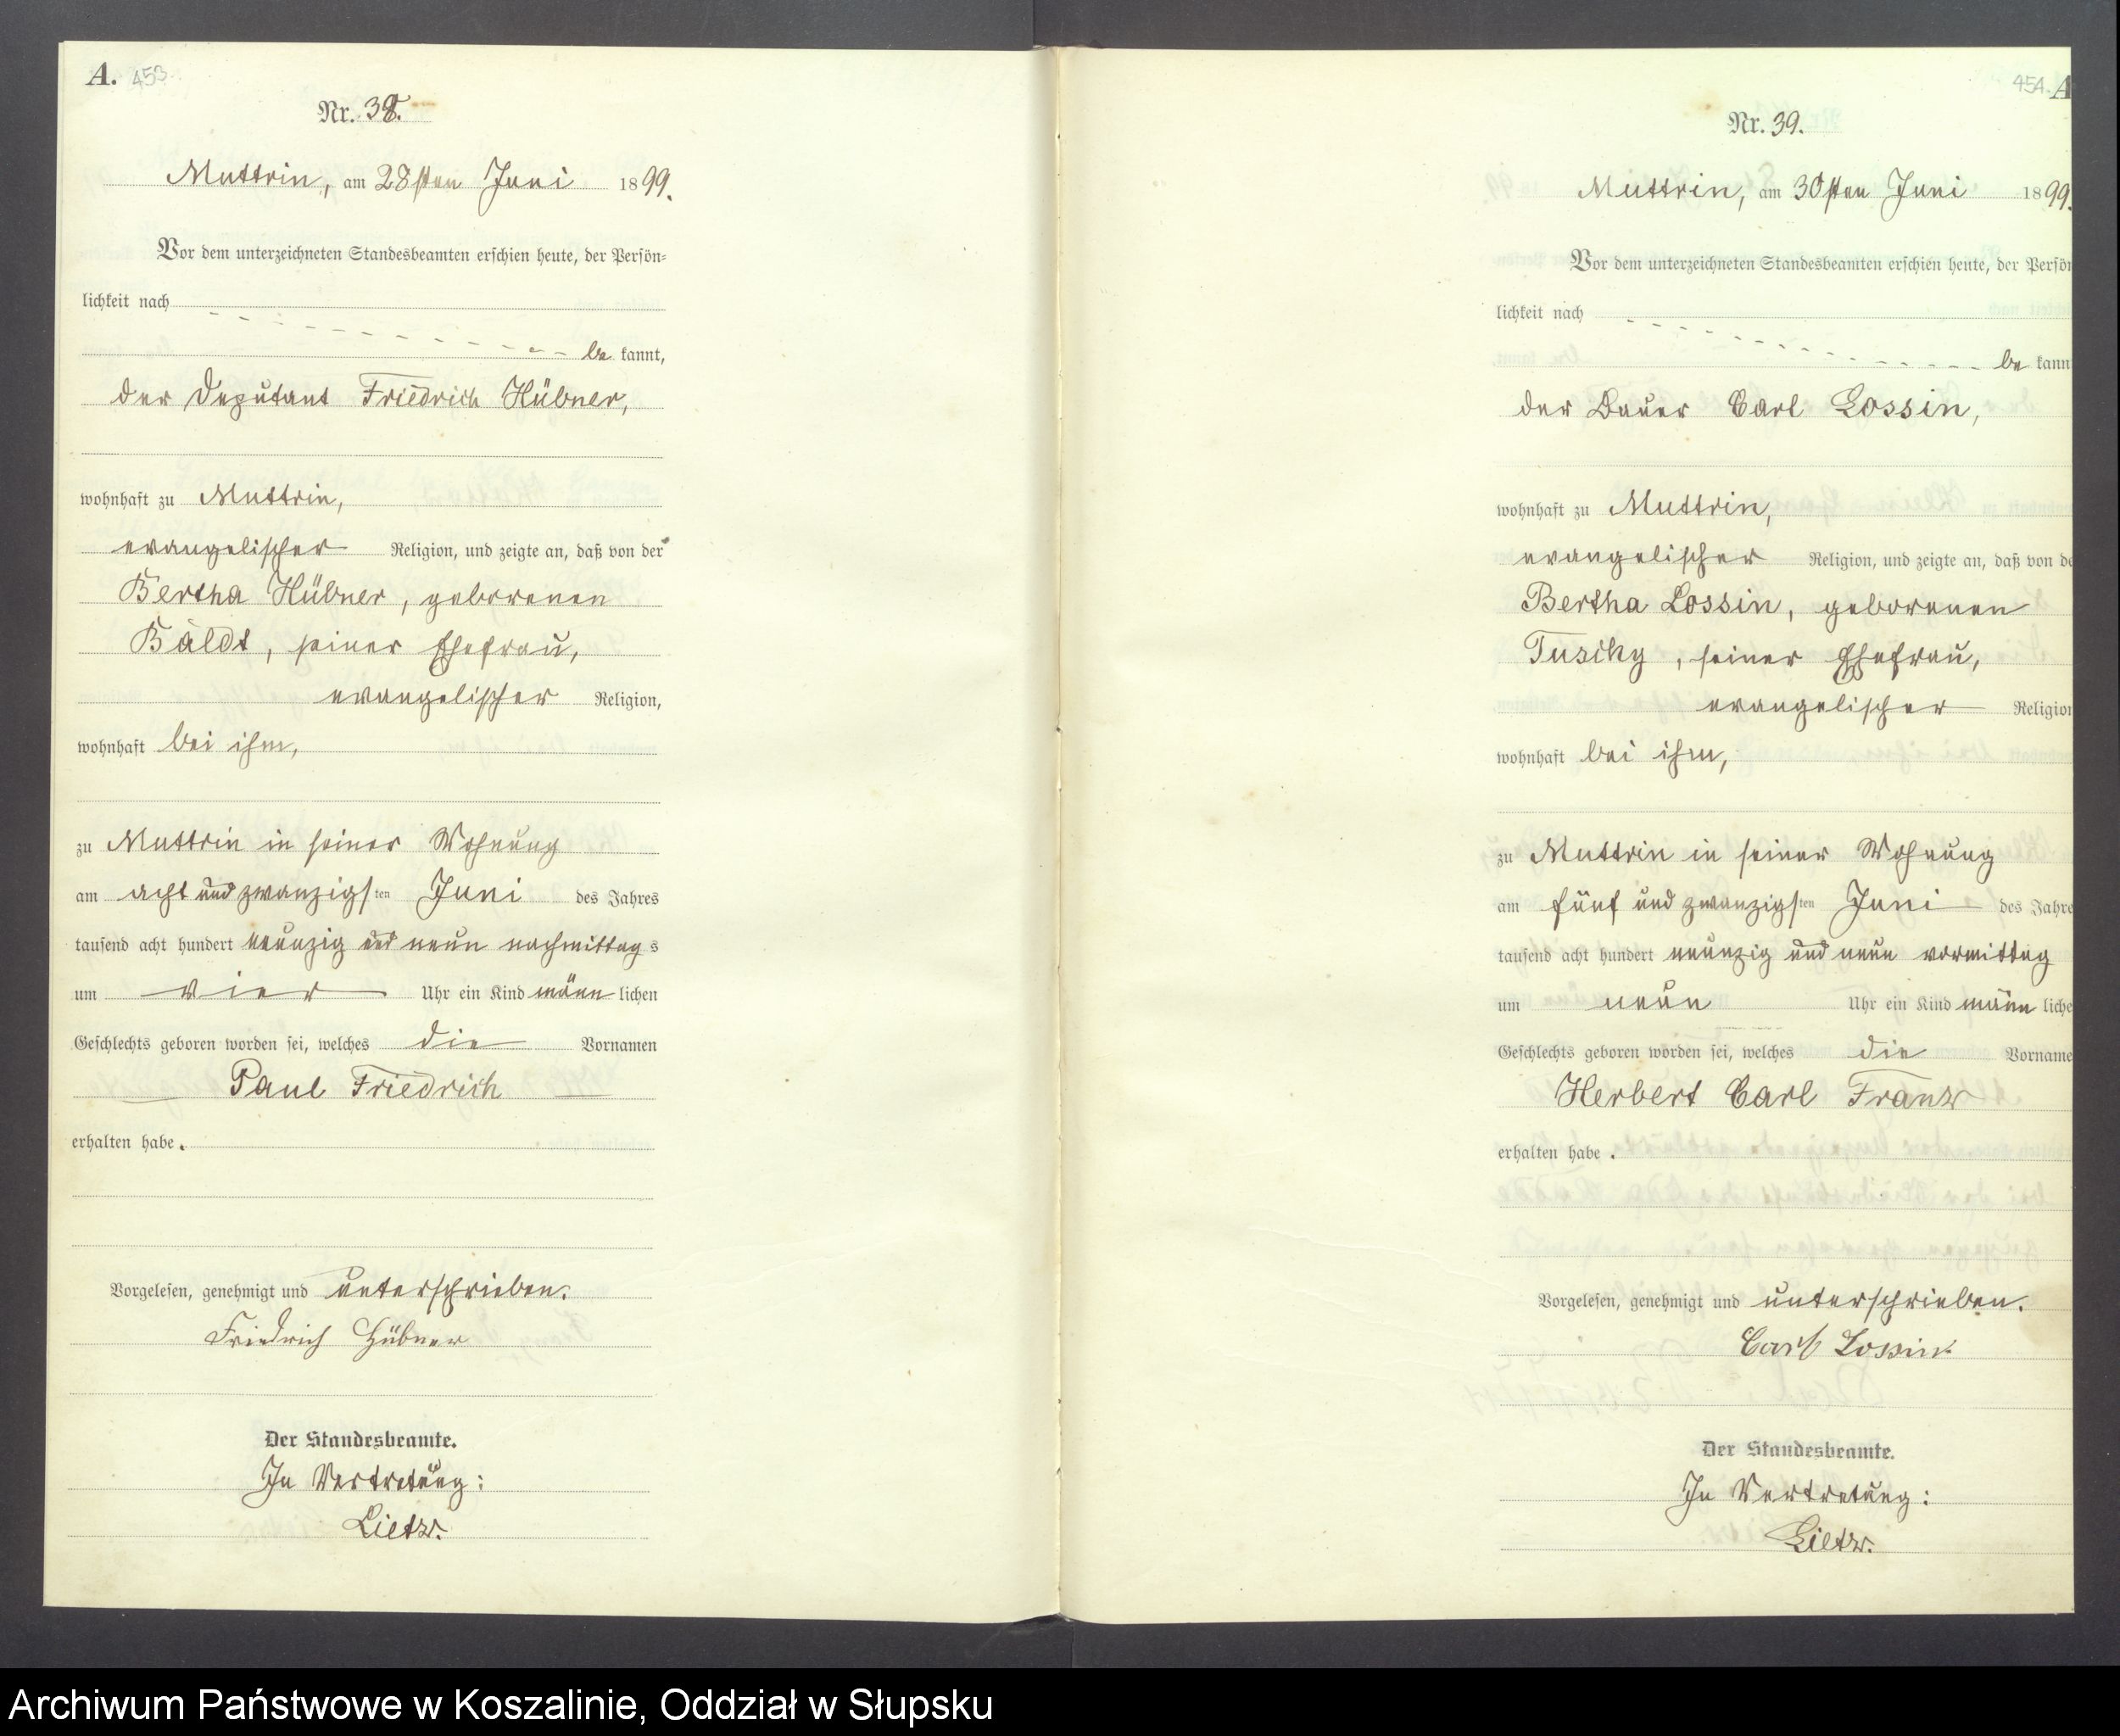 A. 453.
Nr. 38.
Muttrin, am 28sten Juni 1899.
Vor dem unterzeichneten Standesbeamten erschien heute, der Persön-
lichkeit nach
be kannt,
der Deputant Friedrich Hübner,
wohnhaft zu Muttrin,
evangelischer Religion, und zeigte an, daß von der
Bertha Hübner, geborenen
Bäldt, seiner Ehefrau,
evangelischer Religion,
wohnhaft bei ihm,
zu Muttrin in seiner Wohnung
am acht und zwanzigsten Juni des Jahres
tausend acht hundert neunzig und neun nachmittags
um vier Uhr ein Kind männlichen
Geschlechts geboren worden sei, welches die Vornamen
Paul Friedrich
erhalten habe.
Vorgelesen, genehmigt und unterschrieben.
Friedrich Hübner
Der Standesbeamte.
In Vertretung:
Lietz.
454. A
Nr. 39.
Muttrin, am 30sten Juni 1899.
Vor dem unterzeichneten Standesbeamten erschien heute, der Persön
lichkeit nach
be kann
der Bauer Carl Lossin,
wohnhaft zu Muttrin,
evangelischer Religion, und zeigte an, daß von de
Bertha Lossin, geborenen
Tuschy, seiner Ehefrau,
evangelischer Religion
wohnhaft bei ihm,
zu Muttrin in seiner Wohnung
am fünf und zwanzigsten Juni des Jahre
tausend acht hundert neunzig und neun vormittag
um neun Uhr ein Kind männliche
Geschlechts geboren worden sei, welches die Vorname
Herbert Carl Franz
erhalten habe.
Vorgelesen, genehmigt und unterschrieben.
Carl Lossin.
Der Standesbeamte.
In Vertretung:
Lietz.
Archiwum Państwowe w Koszalinie, Oddział w Słupsku